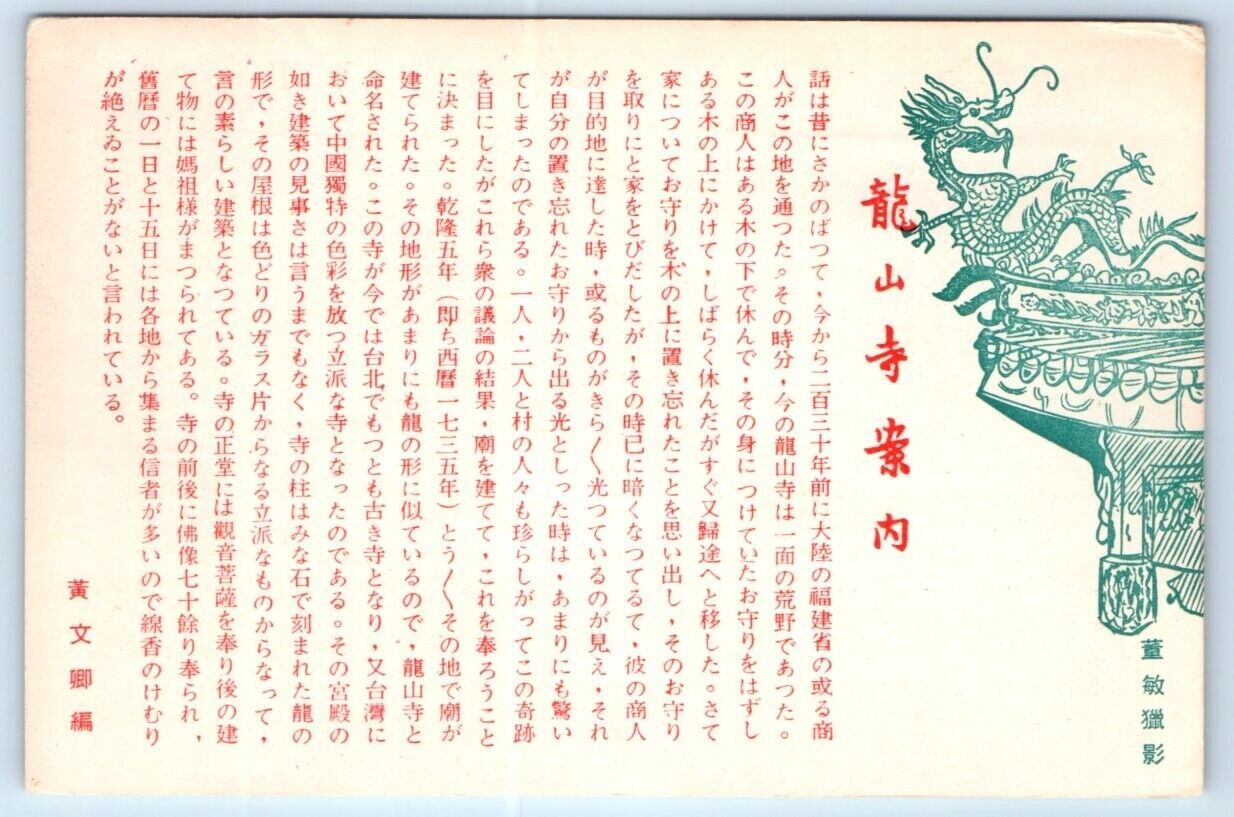 龍山寺案内
話は昔にさかのぼつて，今から二百三十年前に大陸の福建省の或る商
人がこの地を通つた。その時分，今の龍山寺は一面の荒野であつた。
この商人はある木の下で休んで，その身につけていたお守りをはずし
ある木の上にかけて，しばらく休んだがすぐ又歸途へと移した。さて
家についてお守りを木の上に置き忘れたことを思い出し，そのお守り
を取りにと家をとびだしたが，その時已に暗くなつてるて，彼の商人
が目的地に達した時，或るものがきら〱光つているのが見え，それ
が自分の置き忘れたお守りから出る光としった時は，あまりにも驚い
てしまったのである。一人，二人と村の人々も珍らしがってこの奇跡
を目にしたがこれら衆の議論の結果，廟を建てて，これを奉ろうこと
に決まった。乾隆五年（即ち西曆一七三五年）とう〱その地で廟が
建てられた。その地形があまりにも龍の形に似ているので，龍山寺と
命名された。この寺が今では台北でもつとも古き寺となり，又台灣に
おいて中國獨特の色彩を放つ立派な寺となったのである。その宮殿の
如き建築の見事さは言うまでもなく，寺の柱はみな石で刻まれた龍の
形で，その屋根は色どりのガラス片からなる立派なものからなって，
言の素らしい建築となつている。寺の正堂には觀音菩薩を奉り後の建
て物には媽祖様がまつられてある。寺の前後に佛像七十餘り奉られ，
舊曆の一日と十五日には各地から集まる信者が多いので線香のけむり
が絶えゐことがないと言われている。
黃文卿編
董敏獵影